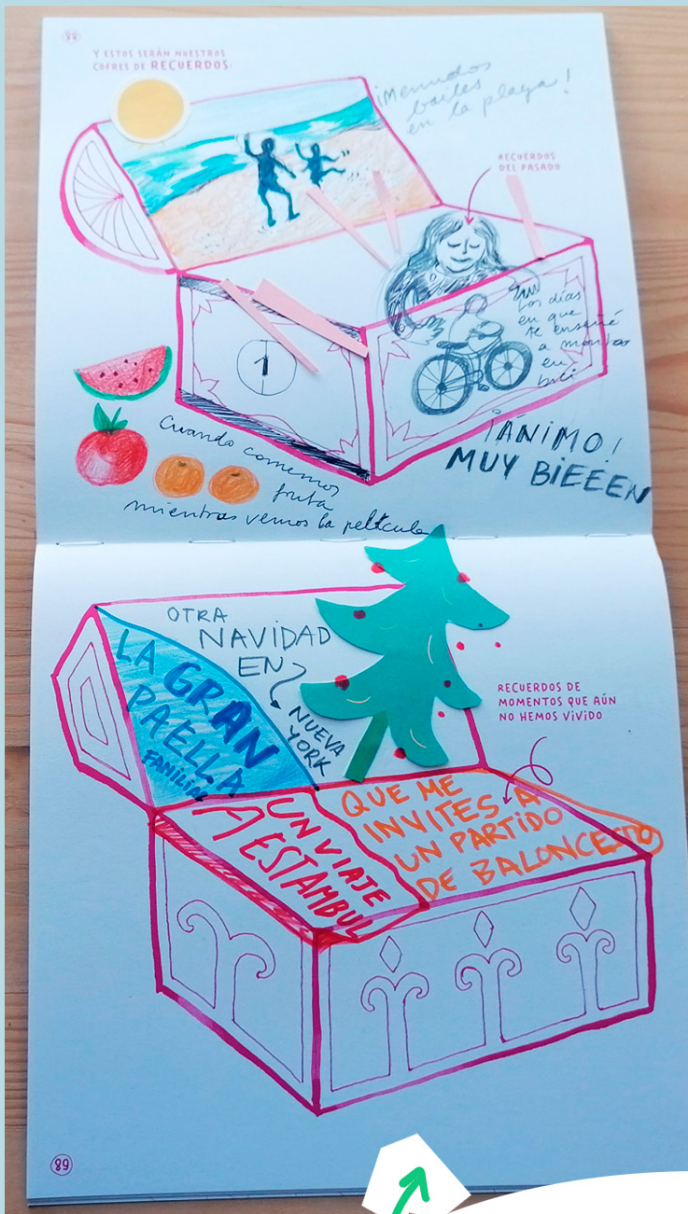 88
Y ESTOS SERÁN NUESTROS
COFRES DE RECUERDOS
¡Menudos
bailes
en la playa!
RECUERDOS
DEL PASADO
Los días
en que
te enseñé
a montar
en
bici
1
¡ÁNIMO!
MUY BIEEEN
Cuando comemos
fruta
mientras vemos la película
OTRA
NAVIDAD
EN
NUEVA
YORK
LA GRAN
PAELLA
FAMILIAR
RECUERDOS DE
MOMENTOS QUE AÚN
NO HEMOS VIVIDO
UN VIAJE
A ESTAMBUL
QUE ME
INVITES A
UN PARTIDO
DE BALONCESTO
89